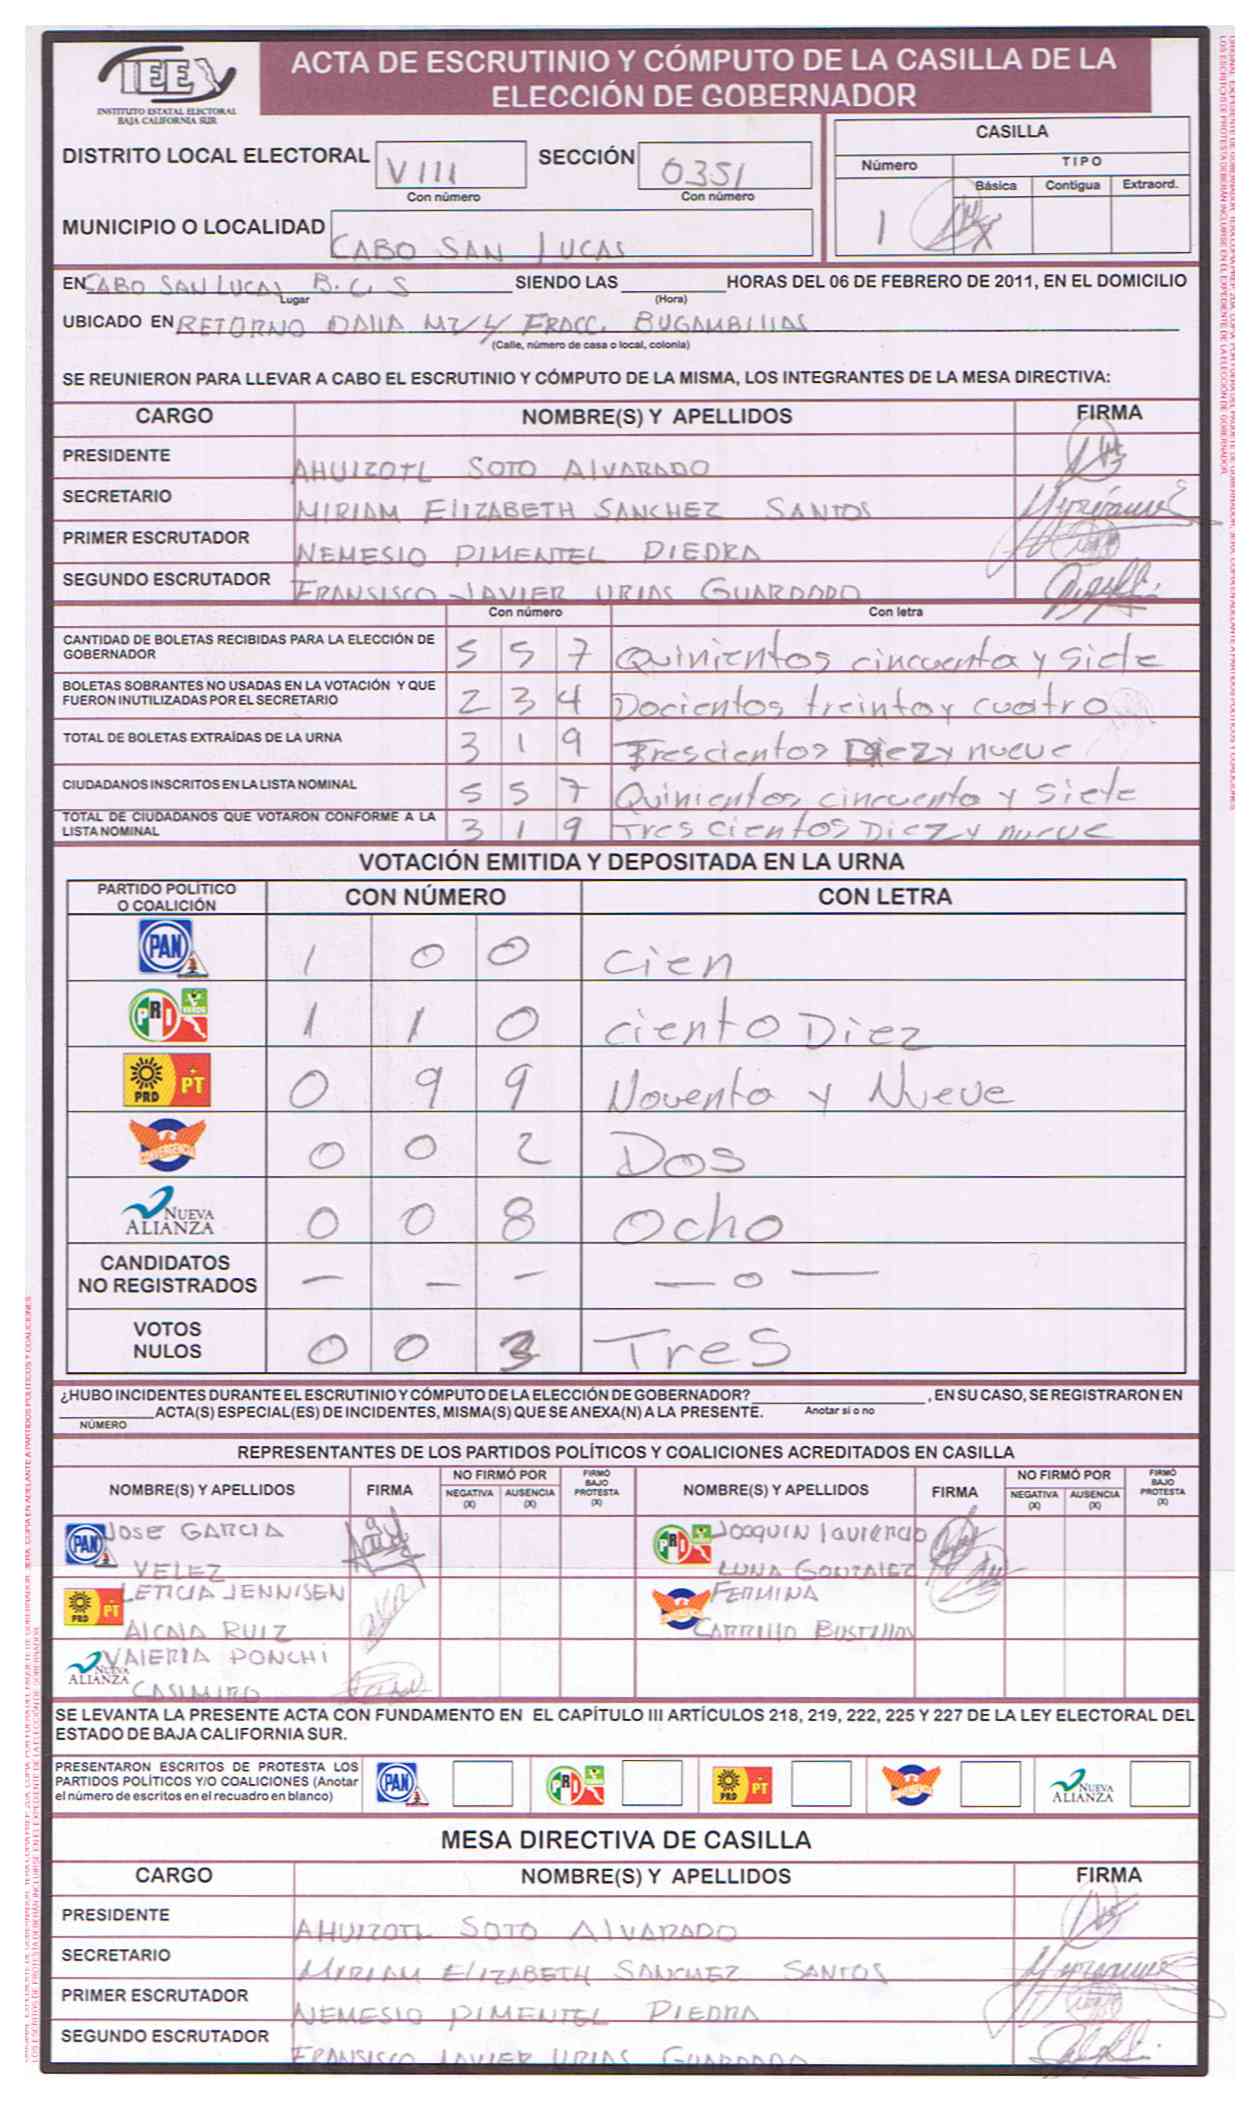 ACTA DE ESCRUTINIO Y CÓMPUTO DE LA CASILLA DE LA
ELECCIÓN DE GOBERNADOR
IEE
INSTITUTO ESTATAL ELECTORAL
BAJA CALIFORNIA SUR
DISTRITO LOCAL ELECTORAL VIII SECCIÓN 0351
Con número Con número
CASILLA
Número TIPO
Básica Contigua Extraord.
1 X
MUNICIPIO O LOCALIDAD CABO SAN LUCAS
EN CABO SAN LUCAS B.C.S SIENDO LAS HORAS DEL 06 DE FEBRERO DE 2011, EN EL DOMICILIO
Lugar (Hora)
UBICADO EN RETORNO DALIA MZ/4 FRACC. BUGAMBILIAS
(Calle, número de casa o local, colonia)
SE REUNIERON PARA LLEVAR A CABO EL ESCRUTINIO Y CÓMPUTO DE LA MISMA, LOS INTEGRANTES DE LA MESA DIRECTIVA:
CARGO NOMBRE(S) Y APELLIDOS FIRMA
PRESIDENTE AHUIZOTL SOTO ALVARADO
SECRETARIO MIRIAM ELIZABETH SANCHEZ SANTOS
PRIMER ESCRUTADOR NEMESIO PIMENTEL PIEDRA
SEGUNDO ESCRUTADOR FRANSISCO JAVIER URIAS GUARDADO
Con número Con letra
CANTIDAD DE BOLETAS RECIBIDAS PARA LA ELECCIÓN DE
GOBERNADOR 5 5 7 Quinientos cincuenta y siete
BOLETAS SOBRANTES NO USADAS EN LA VOTACIÓN Y QUE
FUERON INUTILIZADAS POR EL SECRETARIO 2 3 4 Docientos treinta y cuatro
TOTAL DE BOLETAS EXTRAÍDAS DE LA URNA 3 1 9 Trescientos Diez y nueve
CIUDADANOS INSCRITOS EN LA LISTA NOMINAL 5 5 7 Quinientos cincuenta y siete
TOTAL DE CIUDADANOS QUE VOTARON CONFORME A LA
LISTA NOMINAL 3 1 9 Tres cientos Diez y nueve
VOTACIÓN EMITIDA Y DEPOSITADA EN LA URNA
PARTIDO POLÍTICO
O COALICIÓN CON NÚMERO CON LETRA
PAN 1 0 0 cien
PRI VERDE 1 1 0 ciento Diez
PRD PT 0 9 9 Noventa y Nueve
CONVERGENCIA 0 0 2 Dos
NUEVA ALIANZA 0 0 8 Ocho
CANDIDATOS
NO REGISTRADOS — — — — o —
VOTOS
NULOS 0 0 3 Tres
¿HUBO INCIDENTES DURANTE EL ESCRUTINIO Y CÓMPUTO DE LA ELECCIÓN DE GOBERNADOR? , EN SU CASO, SE REGISTRARON EN
ACTA(S) ESPECIAL(ES) DE INCIDENTES, MISMA(S) QUE SE ANEXA(N) A LA PRESENTE. Anotar si o no
NÚMERO
REPRESENTANTES DE LOS PARTIDOS POLÍTICOS Y COALICIONES ACREDITADOS EN CASILLA
NOMBRE(S) Y APELLIDOS FIRMA NO FIRMÓ POR NEGATIVA (X) AUSENCIA (X) FIRMÓ BAJO PROTESTA (X) NOMBRE(S) Y APELLIDOS FIRMA NO FIRMÓ POR NEGATIVA (X) AUSENCIA (X) FIRMÓ BAJO PROTESTA (X)
PAN JOSE GARCIA PRI JOAQUIN laurencio
VELEZ LUNA GONZALEZ
PRD PT LETICIA JENNISEN FERMINA
Alcala RUIZ CARRILLO BUSTILLOS
VALERIA PONCHI
NUEVA ALIANZA CASIMIRO
SE LEVANTA LA PRESENTE ACTA CON FUNDAMENTO EN EL CAPÍTULO III ARTÍCULOS 218, 219, 222, 225 Y 227 DE LA LEY ELECTORAL DEL
ESTADO DE BAJA CALIFORNIA SUR.
PRESENTARON ESCRITOS DE PROTESTA LOS
PARTIDOS POLÍTICOS Y/O COALICIONES (Anotar
el número de escritos en el recuadro en blanco) PAN PRI PRD PT NUEVA ALIANZA
MESA DIRECTIVA DE CASILLA
CARGO NOMBRE(S) Y APELLIDOS FIRMA
PRESIDENTE AHUIZOTL SOTO ALVARADO
SECRETARIO MIRIAM ELIZABETH SANCHEZ SANTOS
PRIMER ESCRUTADOR NEMESIO PIMENTEL PIEDRA
SEGUNDO ESCRUTADOR FRANSISCO JAVIER URIAS GUARDADO